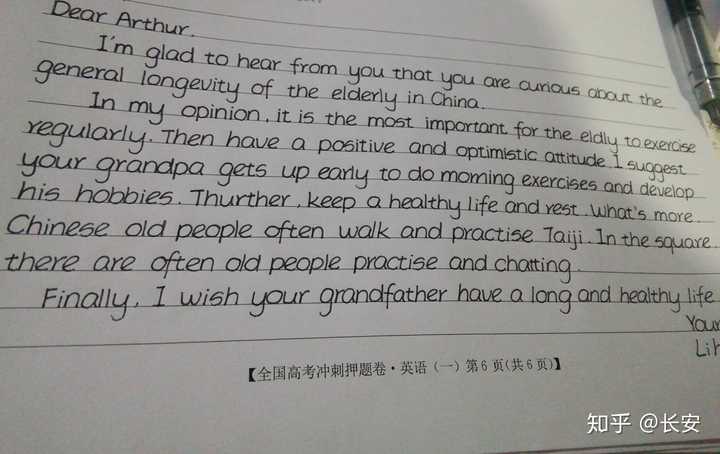 Dear Arthur.
I'm glad to hear from you that you are curious about the
general longevity of the elderly in China.
In my opinion, it is the most important for the eldly to exercise
regularly. Then have a positive and optimistic attitude. I suggest
your grandpa gets up early to do morning exercises and develop
his hobbies. Thurther, keep a healthy life and rest. What's more.
Chinese old people often walk and practise Taiji. In the square
there are often old people practise and chatting.
Finally, I wish your grandfather have a long and healthy life
Your
Lih
【全国高考冲刺押题卷·英语(一) 第6页(共6页)】
知乎 @长安